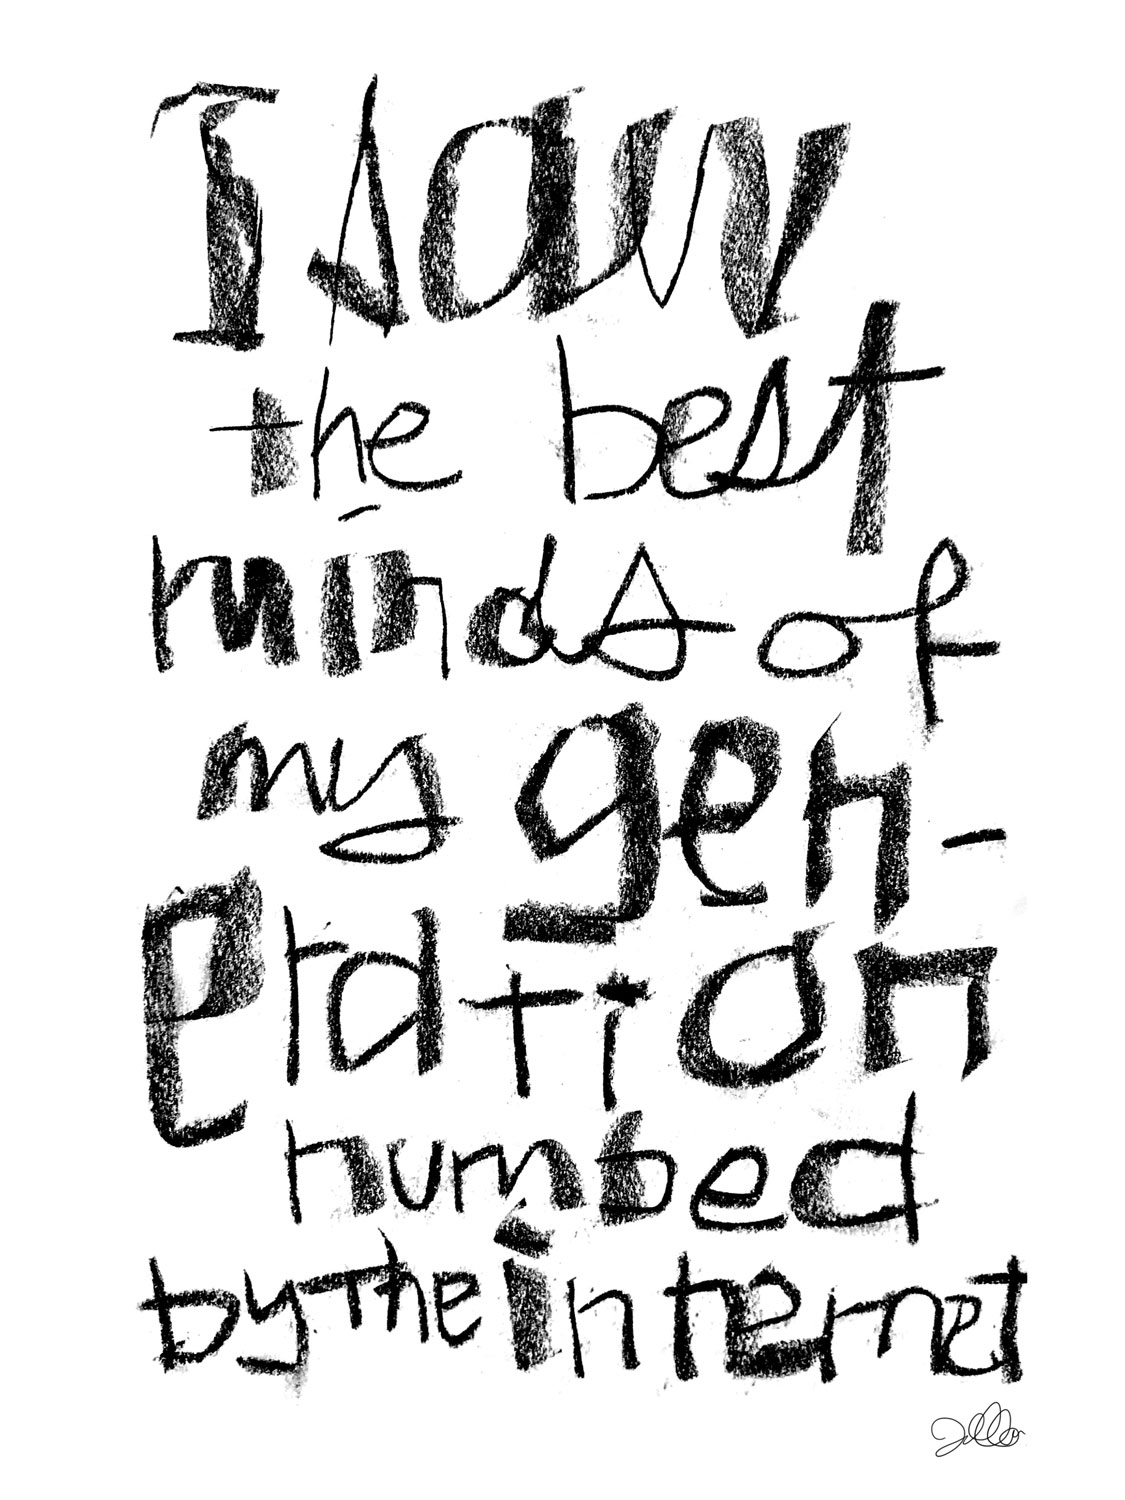 I saw
the best
minds of
my gen-
eration
numbed
by the internet